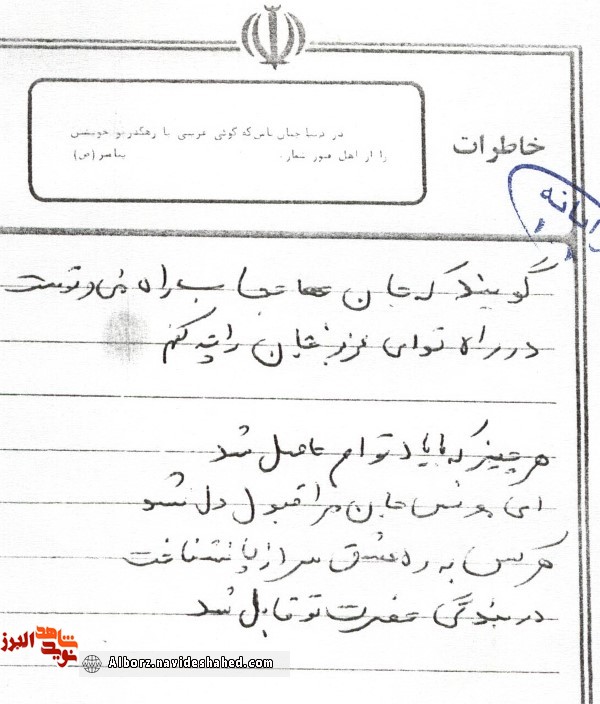 خاطرات
در دنیا چنان باش که گوئی غریبی یا رهگذر و خویشتن
را از اهل قبور شمار. پیامبر (ص)
گویند که جان حجاب راه من و توست
در راه تو ای عزیز جان را چه کنم
هر چیز که با یاد توام حاصل شد
ای مونس جان مرا قبول دل شد
هر کس به ره عشق سر از پا نشناخت
در بندگی حضرت تو قابل شد
نوید شاهد البرز
Alborz.navideshahed.com